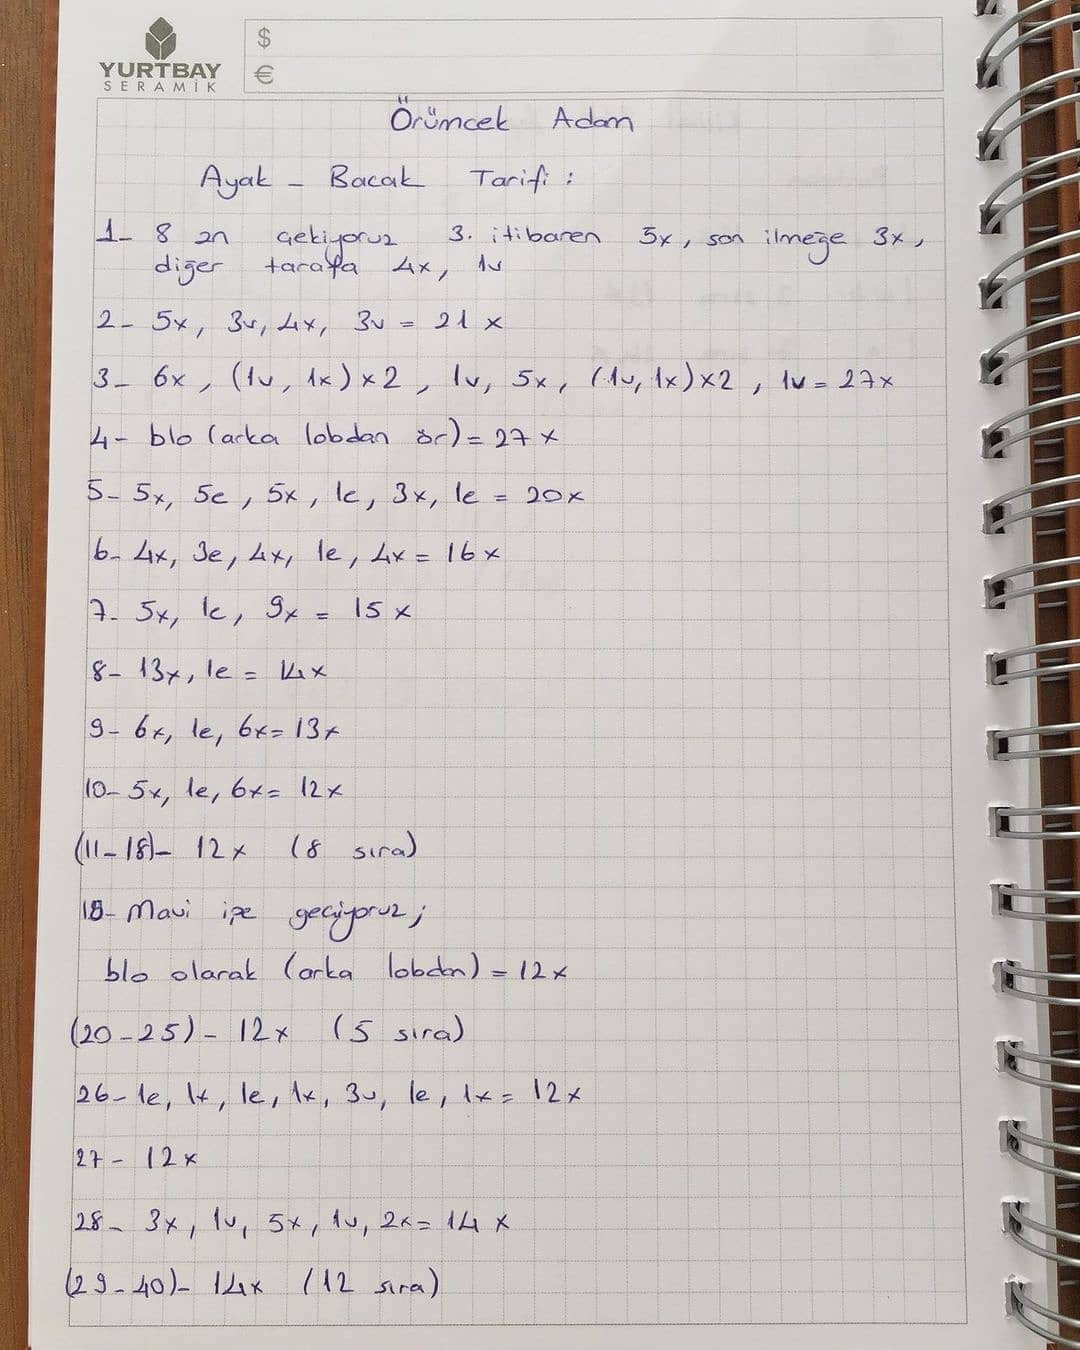 YURTBAY
SERAMİK
$
€
Örümcek Adam
Ayak - Bacak Tarifi :
1- 8 zn çekiyoruz 3. itibaren 5x, son ilmeğe 3x,
diğer tarafa 4x, 1v
2- 5x, 3v, 4x, 3v = 21 x
3- 6x, (1v, 1x) x 2, 1v, 5x, (1v, 1x) x 2, 1v = 27x
4- blo (arka lobdan ör) = 27 x
5- 5x, 5e, 5x, 1e, 3x, 1e = 20x
6- 4x, 3e, 4x, 1e, 4x = 16 x
7- 5x, 1e, 9x = 15 x
8- 13x, 1e = 14x
9- 6x, 1e, 6x = 13x
10- 5x, 1e, 6x = 12x
(11-18)- 12x (8 sıra)
19- Mavi ipe geçiyoruz;
blo olarak (arka lobdan) = 12x
(20-25)- 12x (5 sıra)
26- 1e, 1x, 1e, 1x, 3v, 1e, 1x = 12x
27- 12x
28- 3x, 1v, 5x, 1v, 2x = 14 x
(29-40)- 14x (12 sıra)